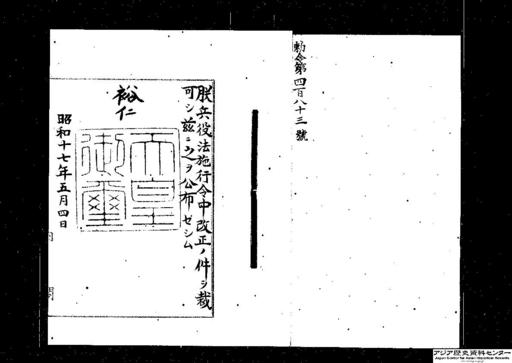 勅令第四百八十三號
朕兵役法施行令中改正ノ件ヲ裁
可シ茲ニ之ヲ公布セシム
裕仁
天皇
御璽
昭和十七年五月四日
アジア歴史資料センター
Japan Center for Asian Historical Records